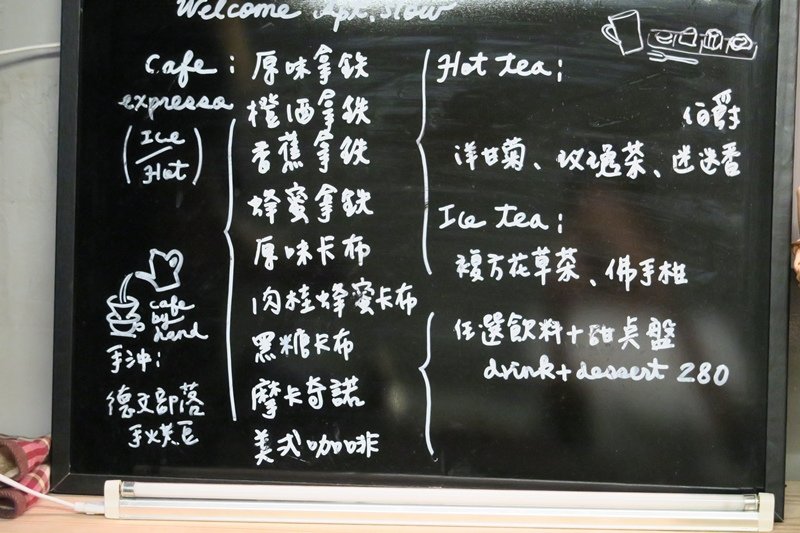 Welcome Apt. Slow
Cafe :
expressa
(Ice/Hot)
原味拿鉄
橙酒拿鉄
香蕉拿鉄
蜂蜜拿鉄
原味卡布
肉桂蜂蜜卡布
黑糖卡布
摩卡奇諾
美式咖啡
cafe
by
hand
手沖:
德文部落
手火烤豆
Hot tea:
伯爵
洋甘菊、玫瑰茶、迷迭香
Ice tea:
複方花草茶、佛手柑
任選飲料+甜點盤
drink+dessert 280